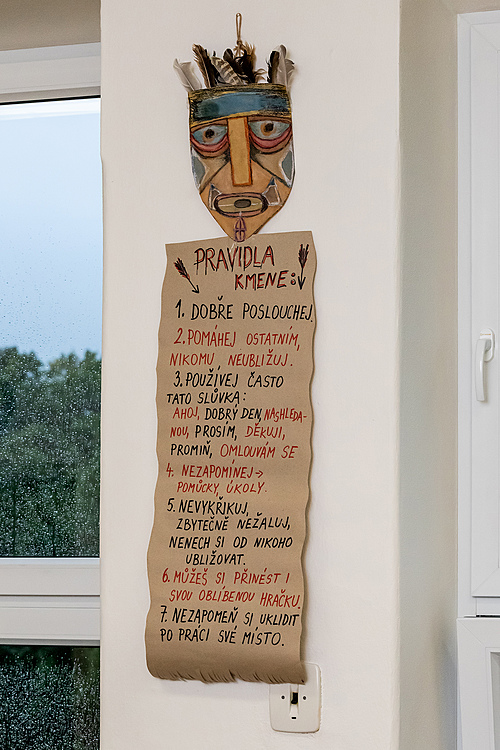 PRAVIDLA
KMENE:
1. DOBŘE POSLOUCHEJ.
2. POMÁHEJ OSTATNÍM,
NIKOMU NEUBLIŽUJ.
3. POUŽÍVEJ ČASTO
TATO SLŮVKA:
AHOJ, DOBRÝ DEN, NASHLEDA-
NOU, PROSÍM, DĚKUJI,
PROMIŇ, OMLOUVÁM SE
4. NEZAPOMÍNEJ→
POMŮCKY, ÚKOLY.
5. NEVYKŘIKUJ,
ZBYTEČNĚ NEŽALUJ,
NENECH SI OD NIKOHO
UBLIŽOVAT.
6. MŮŽEŠ SI PŘINÉST I
SVOU OBLÍBENOU HRAČKU.
7. NEZAPOMEŇ SI UKLIDIT
PO PRÁCI SVÉ MÍSTO.